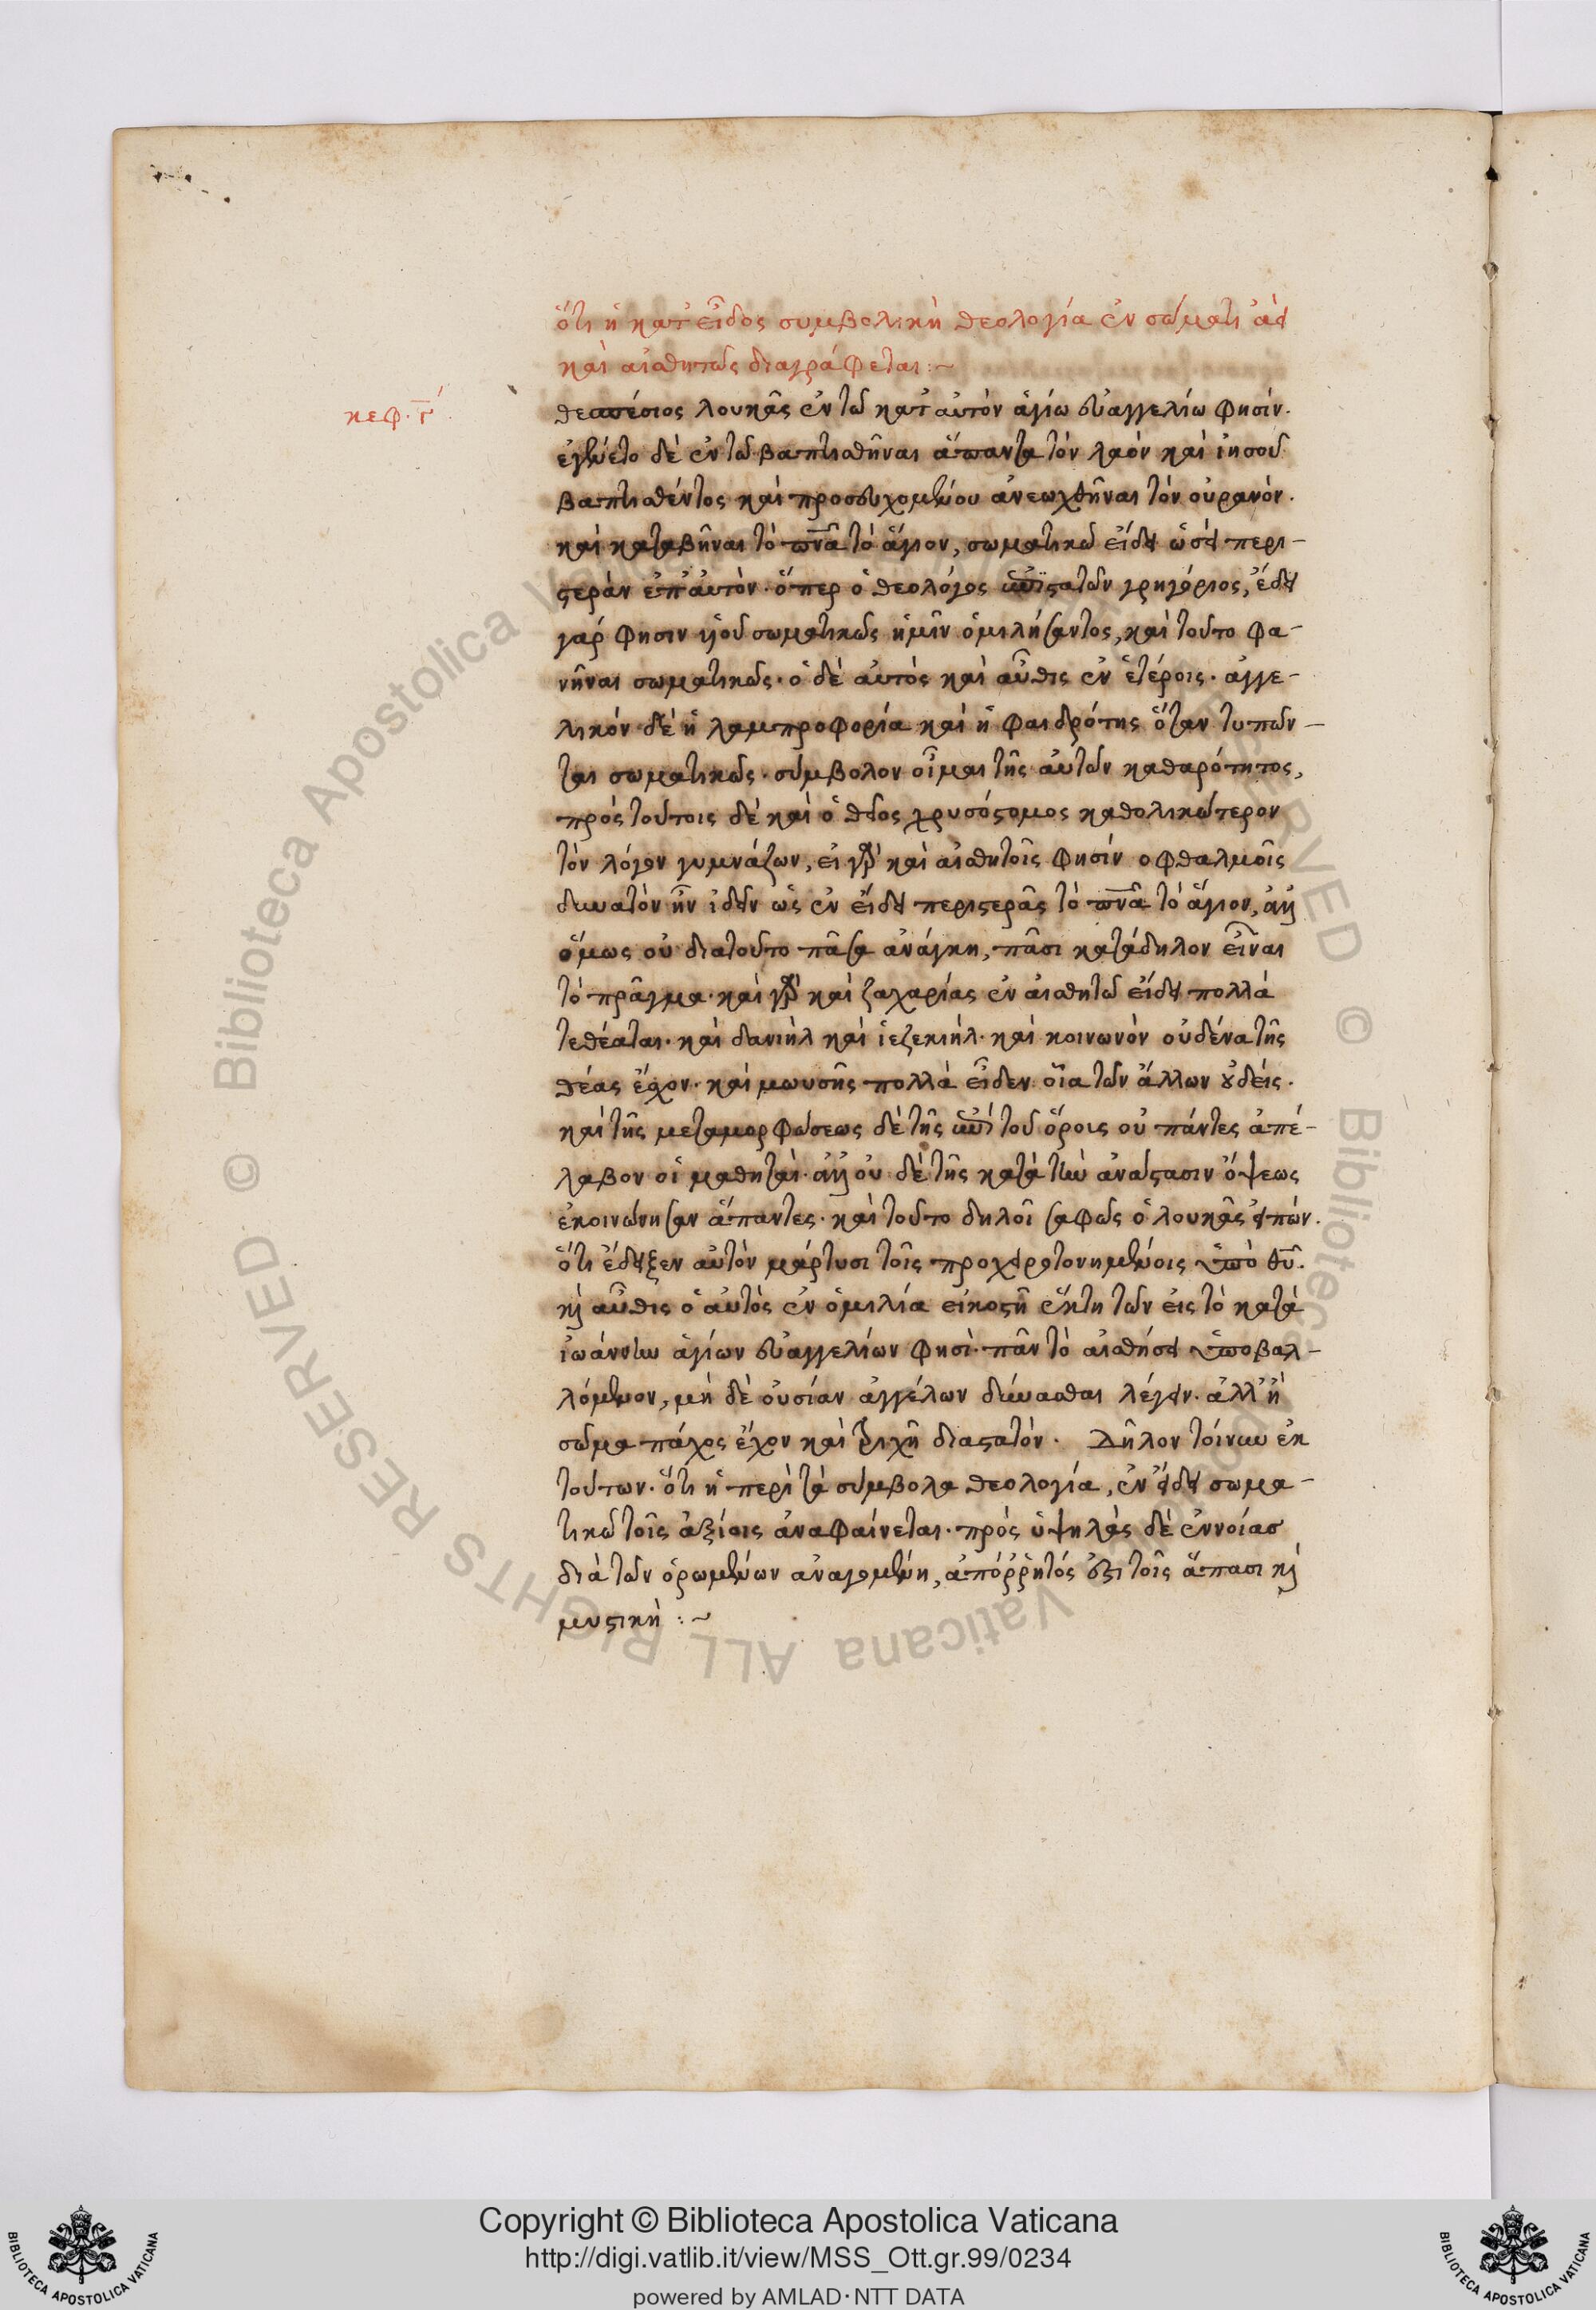 ὅτι ἡ κατ' εἶδος συμβολικὴ θεολογία ἐν σώματι ἀεὶ
καὶ αἰσθητῶς διαγράφεται :~
κεφ. γ'
θεσπέσιος λουκᾶς ἐν τῶ κατ' αὐτὸν ἁγίω εὐαγγελίω φησίν.
ἐγένετο δὲ ἐν τῶ βαπτισθῆναι ἅπαντα τὸν λαὸν καὶ ἰησοῦ
βαπτισθέντος καὶ προσευχομένου ἀνεωχθῆναι τὸν οὐρανόν.
καὶ καταβῆναι τὸ πνᾶ τὸ ἅγιον, σωματικῶ εἴδει ὡσεὶ περι-
στερὰν ἐπ' αὐτὸν. ὅπερ ὁ θεολόγος γρηγόριος, ἔδει
γάρ φησιν υἱοῦ σωματικῶς ἡμῖν ὁμιλήσαντος, καὶ τοῦτο φα-
νῆναι σωματικῶς. ὁ δὲ αὐτὸς καὶ αὖθις ἐν ἑτέροις. ἀγγε-
λικόν δὲ ἡ λαμπροφορία καὶ ἡ φαιδρότης ὅταν τυπῶν-
ται σωματικῶς. σύμβολον οἶμαι τῆς αὐτῶν καθαρότητος,
πρὸς τούτοις δὲ καὶ ὁ θεῖος χρυσόστομος καθολικώτερον
τὸν λόγον γυμνάζων, εἰ γὰρ καὶ αἰσθητοῖς φησίν οφθαλμοῖς
δυνατὸν ἦν ἰδεῖν ὡς ἐν εἴδει περιστερᾶς τὸ πνᾶ τὸ ἅγιον, ἀλλ'
ὅμως οὐ διατοῦτο πᾶσα ἀνάγκη, πᾶσι κατάδηλον εἶναι
τὸ πρᾶγμα. καὶ γὰρ καὶ ζαχαρίας ἐν αἰσθητῶ εἴδει πολλὰ
τεθέαται. καὶ δανιὴλ καὶ ἰεζεκιήλ. καὶ κοινωνὸν οὐδένα τῆς
θέας ἔσχον. καὶ μωυσῆς πολλὰ εἶδεν οἷα τῶν ἄλλων οὐδείς.
καὶ τῆς μεταμορφώσεως δὲ τῆς ἐπὶ τοῦ ὄροις οὐ πάντες ἀπέ-
λαβον οἱ μαθηταὶ. ἀλλ' οὐ δὲ τῆς κατὰ τὴν ἀνάστασιν ὄψεως
ἐκοινώνησαν ἅπαντες. καὶ τοῦτο δηλοῖ σαφῶς ὁ λουκᾶς εἰπών.
ὅτι ἔδειξεν αὐτὸν μάρτυσι τοῖς προχειροτονημένοις ὑπὸ θῦ.
καὶ αὖθις ὁ αὐτὸς ἐν ὁμιλία εἰκοστῆ ἕκτη τῶν εἰς τὸ κατὰ
ἰωάννην ἁγίων εὐαγγελίων φησὶ. πᾶν τὸ αἰσθήσει ὑποβαλ-
λόμενον, μὴ δὲ οὐσίαν ἀγγέλων δύνασθαι λέγειν. ἀλλ' ἢ
σῶμα πάχος ἔχον καὶ τριχῆ διαστατόν. Δῆλον τοίνυν ἐκ
τούτων. ὅτι ἡ περὶ τὰ σύμβολα θεολογία, ἐν εἴδει σωμα-
τικῶ τοῖς ἀξίοις ἀναφαίνεται. πρὸς ὑψηλὰς δὲ ἐννοίας
διὰ τῶν ὁρωμένων ἀναγομένη, ἀπόῤῥητός ἐστι τοῖς ἅπασι καὶ
μυστικὴ :~
Copyright © Biblioteca Apostolica Vaticana
http://digi.vatlib.it/view/MSS_Ott.gr.99/0234
powered by AMLAD·NTT DATA